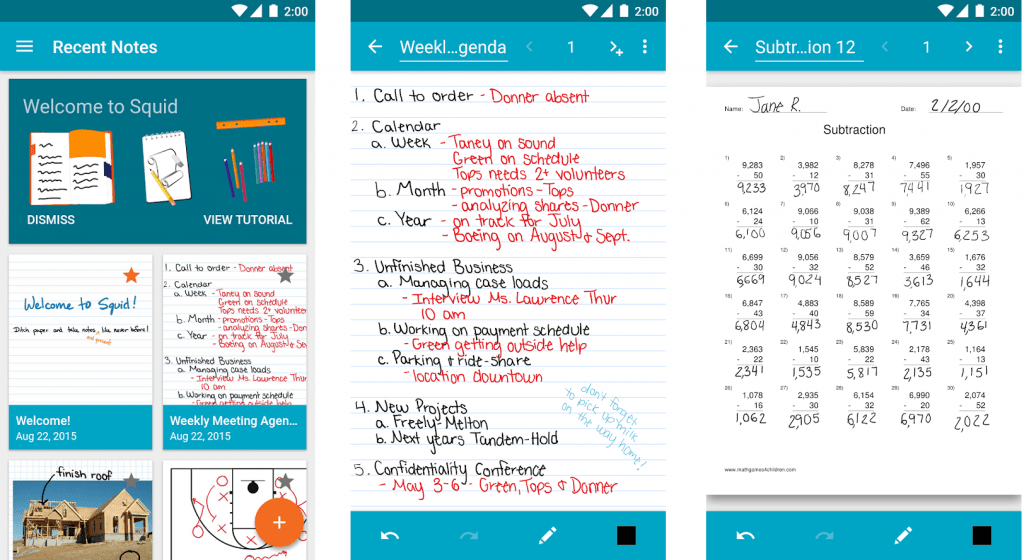 2:00
Recent Notes
Welcome to Squid
DISMISS
VIEW TUTORIAL
Welcome to Squid!
Ditch paper and take notes like never before!
Welcome!
Aug 22, 2015
1. Call to order - Donner absent
2. Calendar
a. Week - Taney on sound
Green on schedule
Tops needs 2+ volunteers
b. Month - promotions - Tops
- analyzing shares - Don
c. Year - on track for July
- Boeing on August & Se
3. Unfinished Business
a. Managing case loads
- Interview Ms. Lawrence Thur
10 am
b. Working on payment schedule
- Green getting outside help
Weekly Meeting Agen...
Aug 22, 2015
finish roof
+
2:00
Weekl...genda
1
1. Call to order - Donner absent
2. Calendar
a. Week - Taney on sound
Green on schedule
Tops needs 2+ volunteers
b. Month - promotions - Tops
- analyzing shares - Donner
c. Year - on track for July
- Boeing on August & Sept.
3. Unfinished Business
a. Managing case loads
- Interview Ms. Lawrence Thur
10 am
b. Working on payment schedule
- Green getting outside help
c. Parking & ride-share
- location downtown
don't forget
to pick up milk
on the way home!
4. New Projects
a. Freely-Melton
b. Next years Tandem-Hold
5. Confidentiality Conference
- May 3-6 - Green, Tops & Donner
2:00
Subtr...ion 12
1
Name: Jane R. Date: 2/2/00
Subtraction
1) 2) 3) 4) 5)
9,283 3,982 8,278 7,496 1,957
- 50 - 12 - 31 - 55 - 30
9233 3970 8,247 7441 1927
6) 7) 8) 9) 10)
6,124 9,066 9,038 9,389 6,266
- 24 - 10 - 31 - 62 - 13
6,100 9,056 9,007 9,327 6,253
11) 12) 13) 14) 15)
6,699 9,056 8,579 3,659 1,676
- 30 - 32 - 52 - 46 - 32
6669 9,024 8527 3,613 1644
16) 17) 18) 19) 20)
6,847 4,883 8,589 7,765 4,398
- 43 - 40 - 59 - 34 - 37
6,804 4,843 8,530 7,731 4361
21) 22) 23) 24) 25)
2,363 1,545 5,839 2,178 1,164
- 22 - 10 - 22 - 43 - 13
2341 1,535 5,817 2,135 1,151
26) 27) 28) 29) 30)
1,078 2,935 6,154 6,990 2,074
- 16 - 30 - 32 - 20 - 52
1,062 2905 6122 6,970 2,022
www.mathgames4children.com